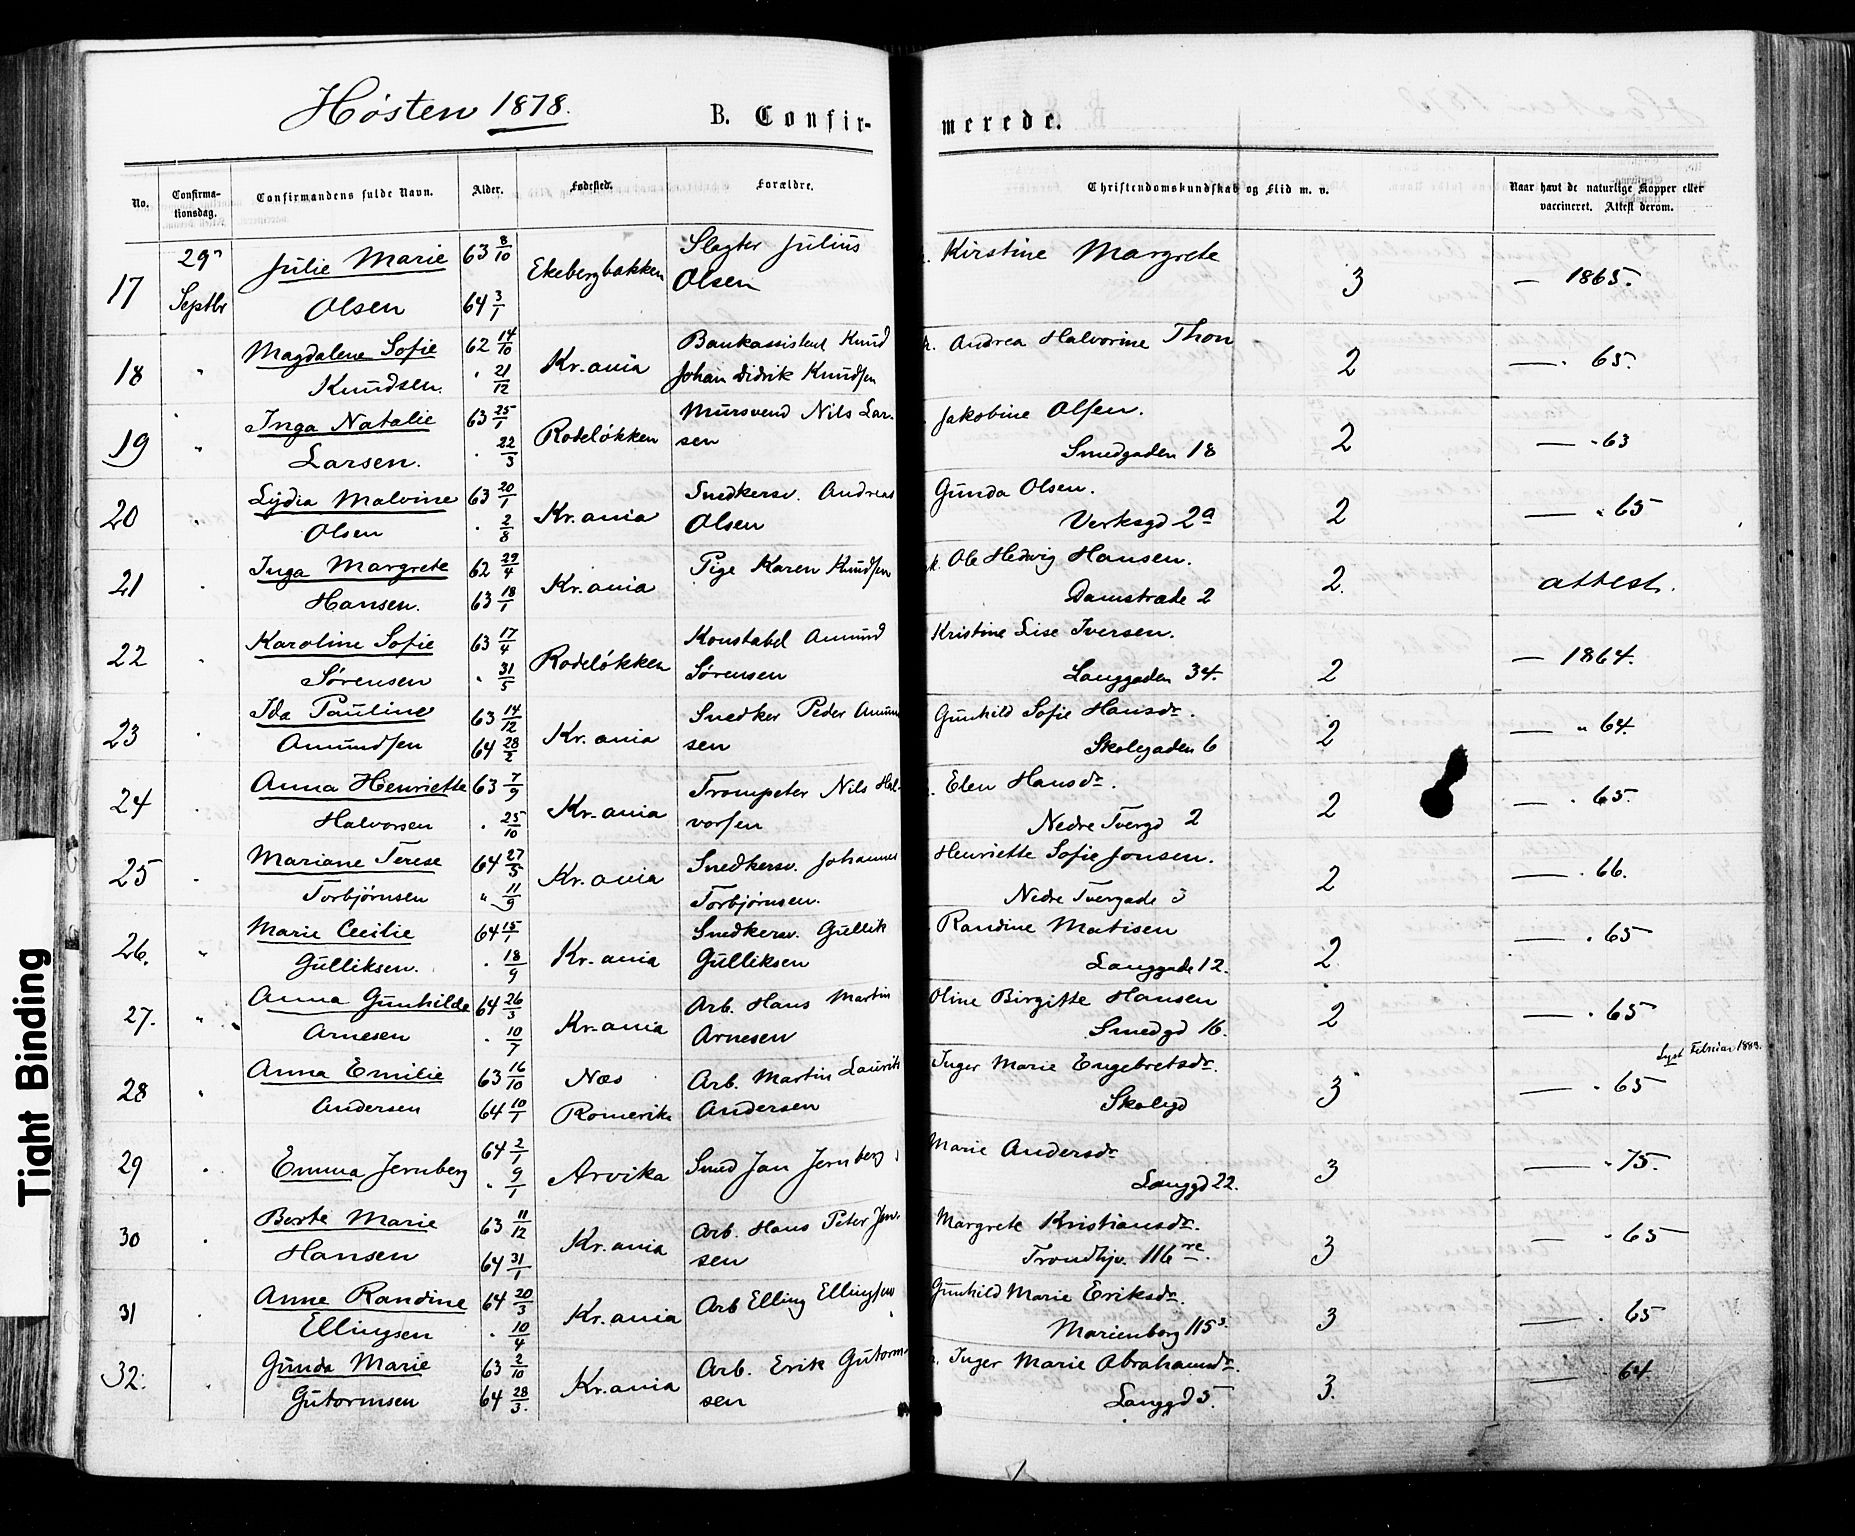 Høsten 1878.
B. Confir-
merede.
No.
Confirma-
tionsdag.
Confirmandens fulde Navn.
Alder.
Fødested.
Forældre.
Christendomskundskab og Flid m. v.
Naar havt de naturlige Kopper eller
vaccineret. Attest derom.
17 29 Julie Marie 63 8/10 Ekebergbakken Slagter Julius Kirstine Margrete 3 — 1865.
Septbr Olsen 64 3/1 Olsen
18 " Magdalene Sofie 62 14/10 Kr.ania Bankassistent Knud Andrea Halvorine Thon 2 — . 65.
Knudsen. " 21/12 Johan Didrik Knudsen
19 " Inga Natalie 63 25/1 Rodeløkken Mursvend Nils Lar- Jakobine Olsen. 2 — " 63
Larsen. " 22/3 sen Smedgaden 18
20 " Lydia Malvine 63 20/1 Kr.ania Snedkersv. Andreas Gunda Olsen. 2 — " 65
Olsen " 2/8 Olsen Verksgd 2a
21 " Inga Margrete 62 29/4 Kr.ania Pige Karen Knudsen Ole Hedvig Hansen. 2. attest.
Hansen. 63 18/1 Damstræde 2
22 " Karoline Sofie 63 17/4 Rodeløkken Konstabel Amund Kristine Lise Iversen. 2 — 1864.
Sørensen " 31/5 Sørensen Langgaden 34.
23 " Ida Pauline 63 14/12 Kr.ania Snedker Peder Amund Gunhild Sofie Hansdr. 2 — " 64.
Amundsen 64 28/2 sen Skolegaden 6
24 " Anna Henriette 63 7/9 Kr.ania Trompeter Nils Hal- Elen Hansdr. 2 — " 65.
Halvorsen " 25/10 vorsen Nedre Tvergd 2
25 " Mariane Terese 64 27/5 Kr.ania Snedkersv. Johannes Henriette Sofie Jonsen. 2 — " 66.
Torbjørnsen " 11/9 Torbjørnsen. Nedre Tvergade 3
26. " Marie Cecilie 64 15/1 Kr.ania Snedkersv. Gullik Randine Matisen 2 — " 65
Gulliksen. " 18/9 Gulliksen Langgade 12.
27. " Anna Gunhilde 64 26/3 Kr.ania Arb. Hans Martin Oline Birgitte Hansen 2 — " 65
Arnesen " 10/7 Arnesen Smedgd 16.
Lyst Februar
28 " Anna Emilie 63 16/10 Næs Arb. Martin Laurits Inger Marie Engebretsdr. 3 — " 65
Andersen 64 10/1 Romerike Andersen Skolegd
29 " Emma Jernberg 64 2/1 Arvika Smed Jan Jernberg Marie Andersdr 3 — " 75.
" 9/1 Langgd 22.
30 " Berte Marie 63 11/12 Kr.ania Arb. Hans Peter Jen- Margrete Kristiansdr. 3 — " 65
Hansen 64 31/1 sen Trondhjv. 116
31 " Anne Randine 64 20/3 Kr.ania Arb Elling Ellingsen Gunhild Marie Eriksdr. 3 — " 65
Ellingsen " 10/4 Marienborg 115
32. " Gunda Marie 63 2/10 Kr.ania Arb. Erik Gutorm- Inger Marie Abrahamsdr. 3. — " 64.
Gutormsen 64 28/3. sen Langgd 5.
Tight Binding